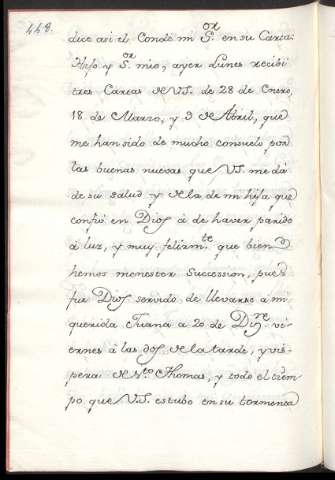 448.
dice asi el Conde mi S.or en su Carta:
Hijo y S.or mio, ayer Lunes recibi
tres Cartas de VS. de 28 de Enero,
18 de Marzo, y 9 de Abril, que
me han sido de mucho consuelo por
las buenas nuevas que VS. me dá
de su salud y de la de mi hija que
confio en Dios á de haver parido
á luz, y muy felizm.te que bien
hemos menester Succession, pues
fue Dios servido de llevarse á mi
querida Juana a 20 de Dis.re vi-
ernes á las dos de la tarde, y vis-
pera de S.to Thomas, y todo el tiem-
po que VS. estubo en su tormenta